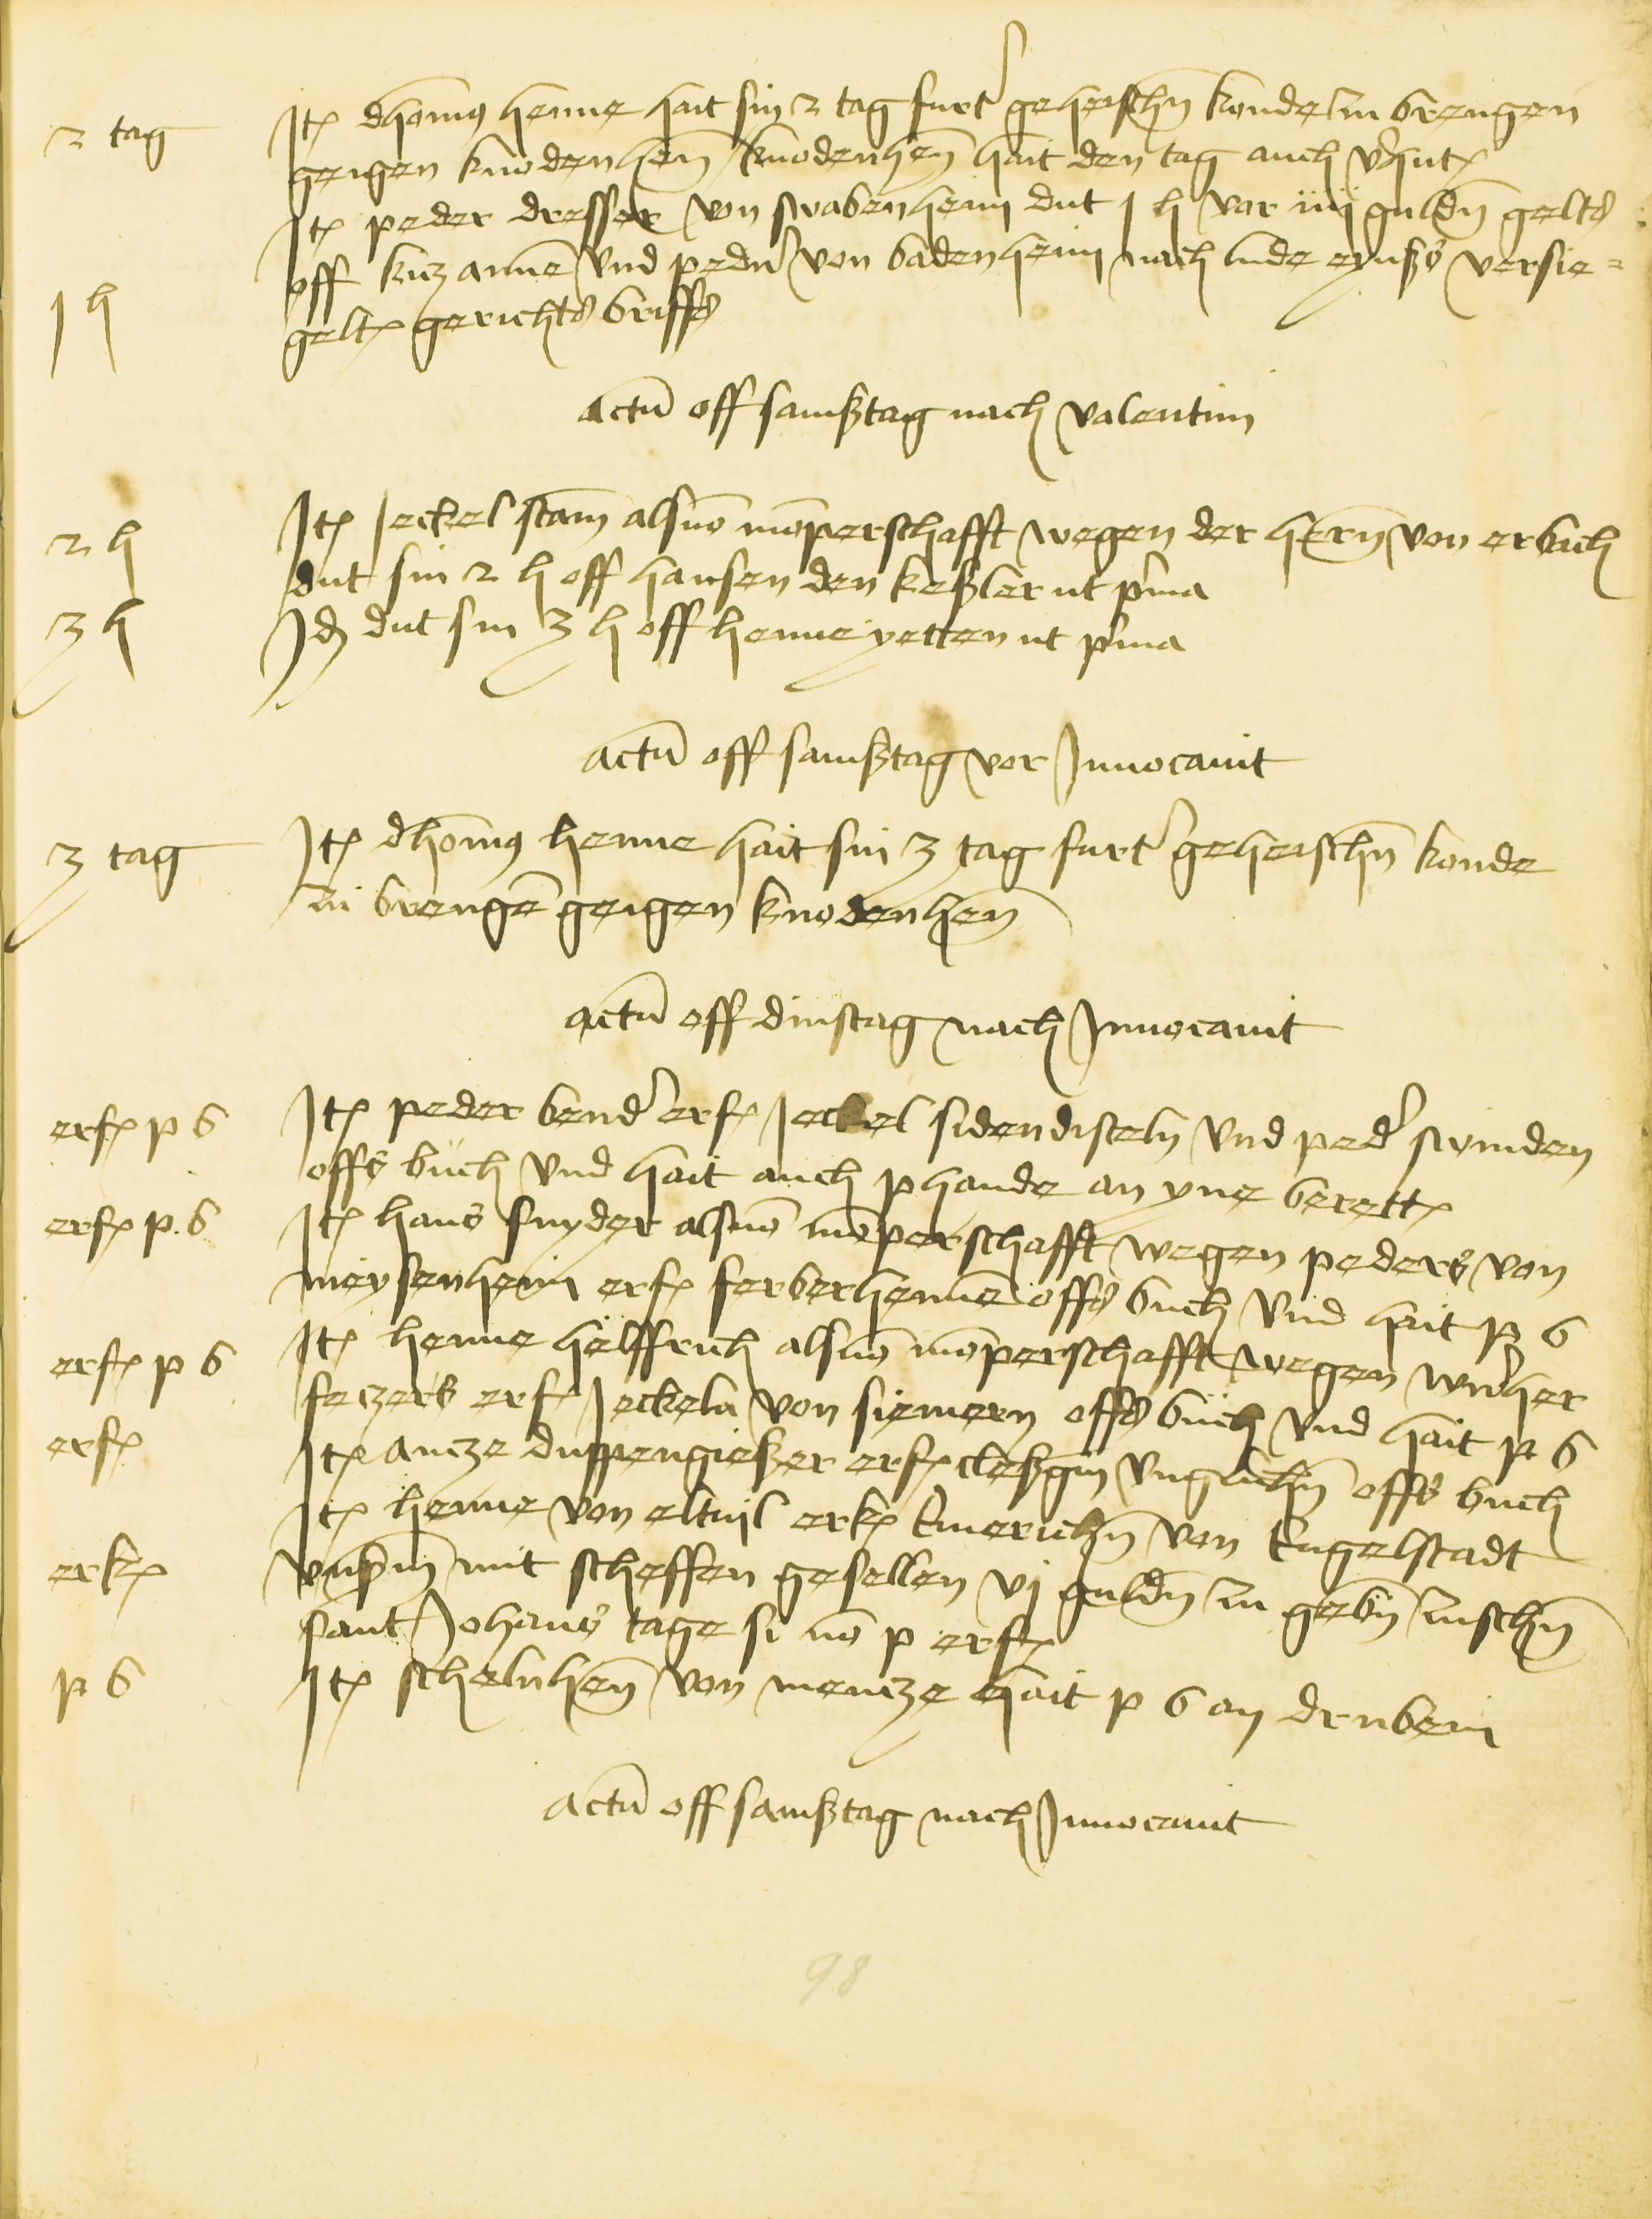 2 tag
Jt(em) dhom(us) henne hait sin 2 tag furt(er) geheischn konde zu brengen
geigen knodenhen knodenhen hait den tag auch v(er)hut
Jt(em) peder dresser von swabenheim dut 1 h vor iiij guldn gelts
off kicz anne vnd pedn von badenheim nach lude eynßs versie=
1 h
gelt gerichts briffs
Actu(m) off samßtag nach valentini
2 h
Jt(em) Jeckel stam als vo(n) mo(m)perschafft wegen der hern von erbach
dut sin 2 h off hansen den keßler ut p(ri)ma
3 h
Jd(em) dut sin 3 h off henne yetten ut p(ri)ma
Actu(m) off samßtag vor Jnuocauit
3 tag
Jt(em) dhom(us) henne hait sin 3 tag furt(er) geheischn konde
zu brenge(n) geigen knodenhen
Actu(m) off dinstag nach Jnuocauit
erf(olgt) p b
Jt(em) peder bend(er) erf(olgt) Jeckel sidendisteln vnd ped(er) swinden
offs buch vnd hait auch phande an yne berett
erf(olgt) p b
Jt(em) hans snyder als vo(n) mo(m)perschafft wegen peders von
meysenheim erf(olgt) ferberhenne offs buch vnd hait p b
erf(olgt) p b
Jt(em) henne helffrich als vo(n) mo(m)perschafft wegen wi(n)ther
feczers erf(olgt) Jeckeln von siemern offs buch vnd hait p b
erf(olgt)
Jt(em) ancze duppengießer erf(olgt) cleßgin vnglichn offs buch
Jt(em) henne von eltuil erk(ennt) Emerichn von Engelstadt
erk(ennt)
mit scheffen gesellen vj guldn zu gebn zuschn
sant Johans tage si no(n) p erf(olgt)
p b
Jt(em) schelnhen von mencze hait p b an drubein
Actu(m) off samßtag nach Jnuocauit
98